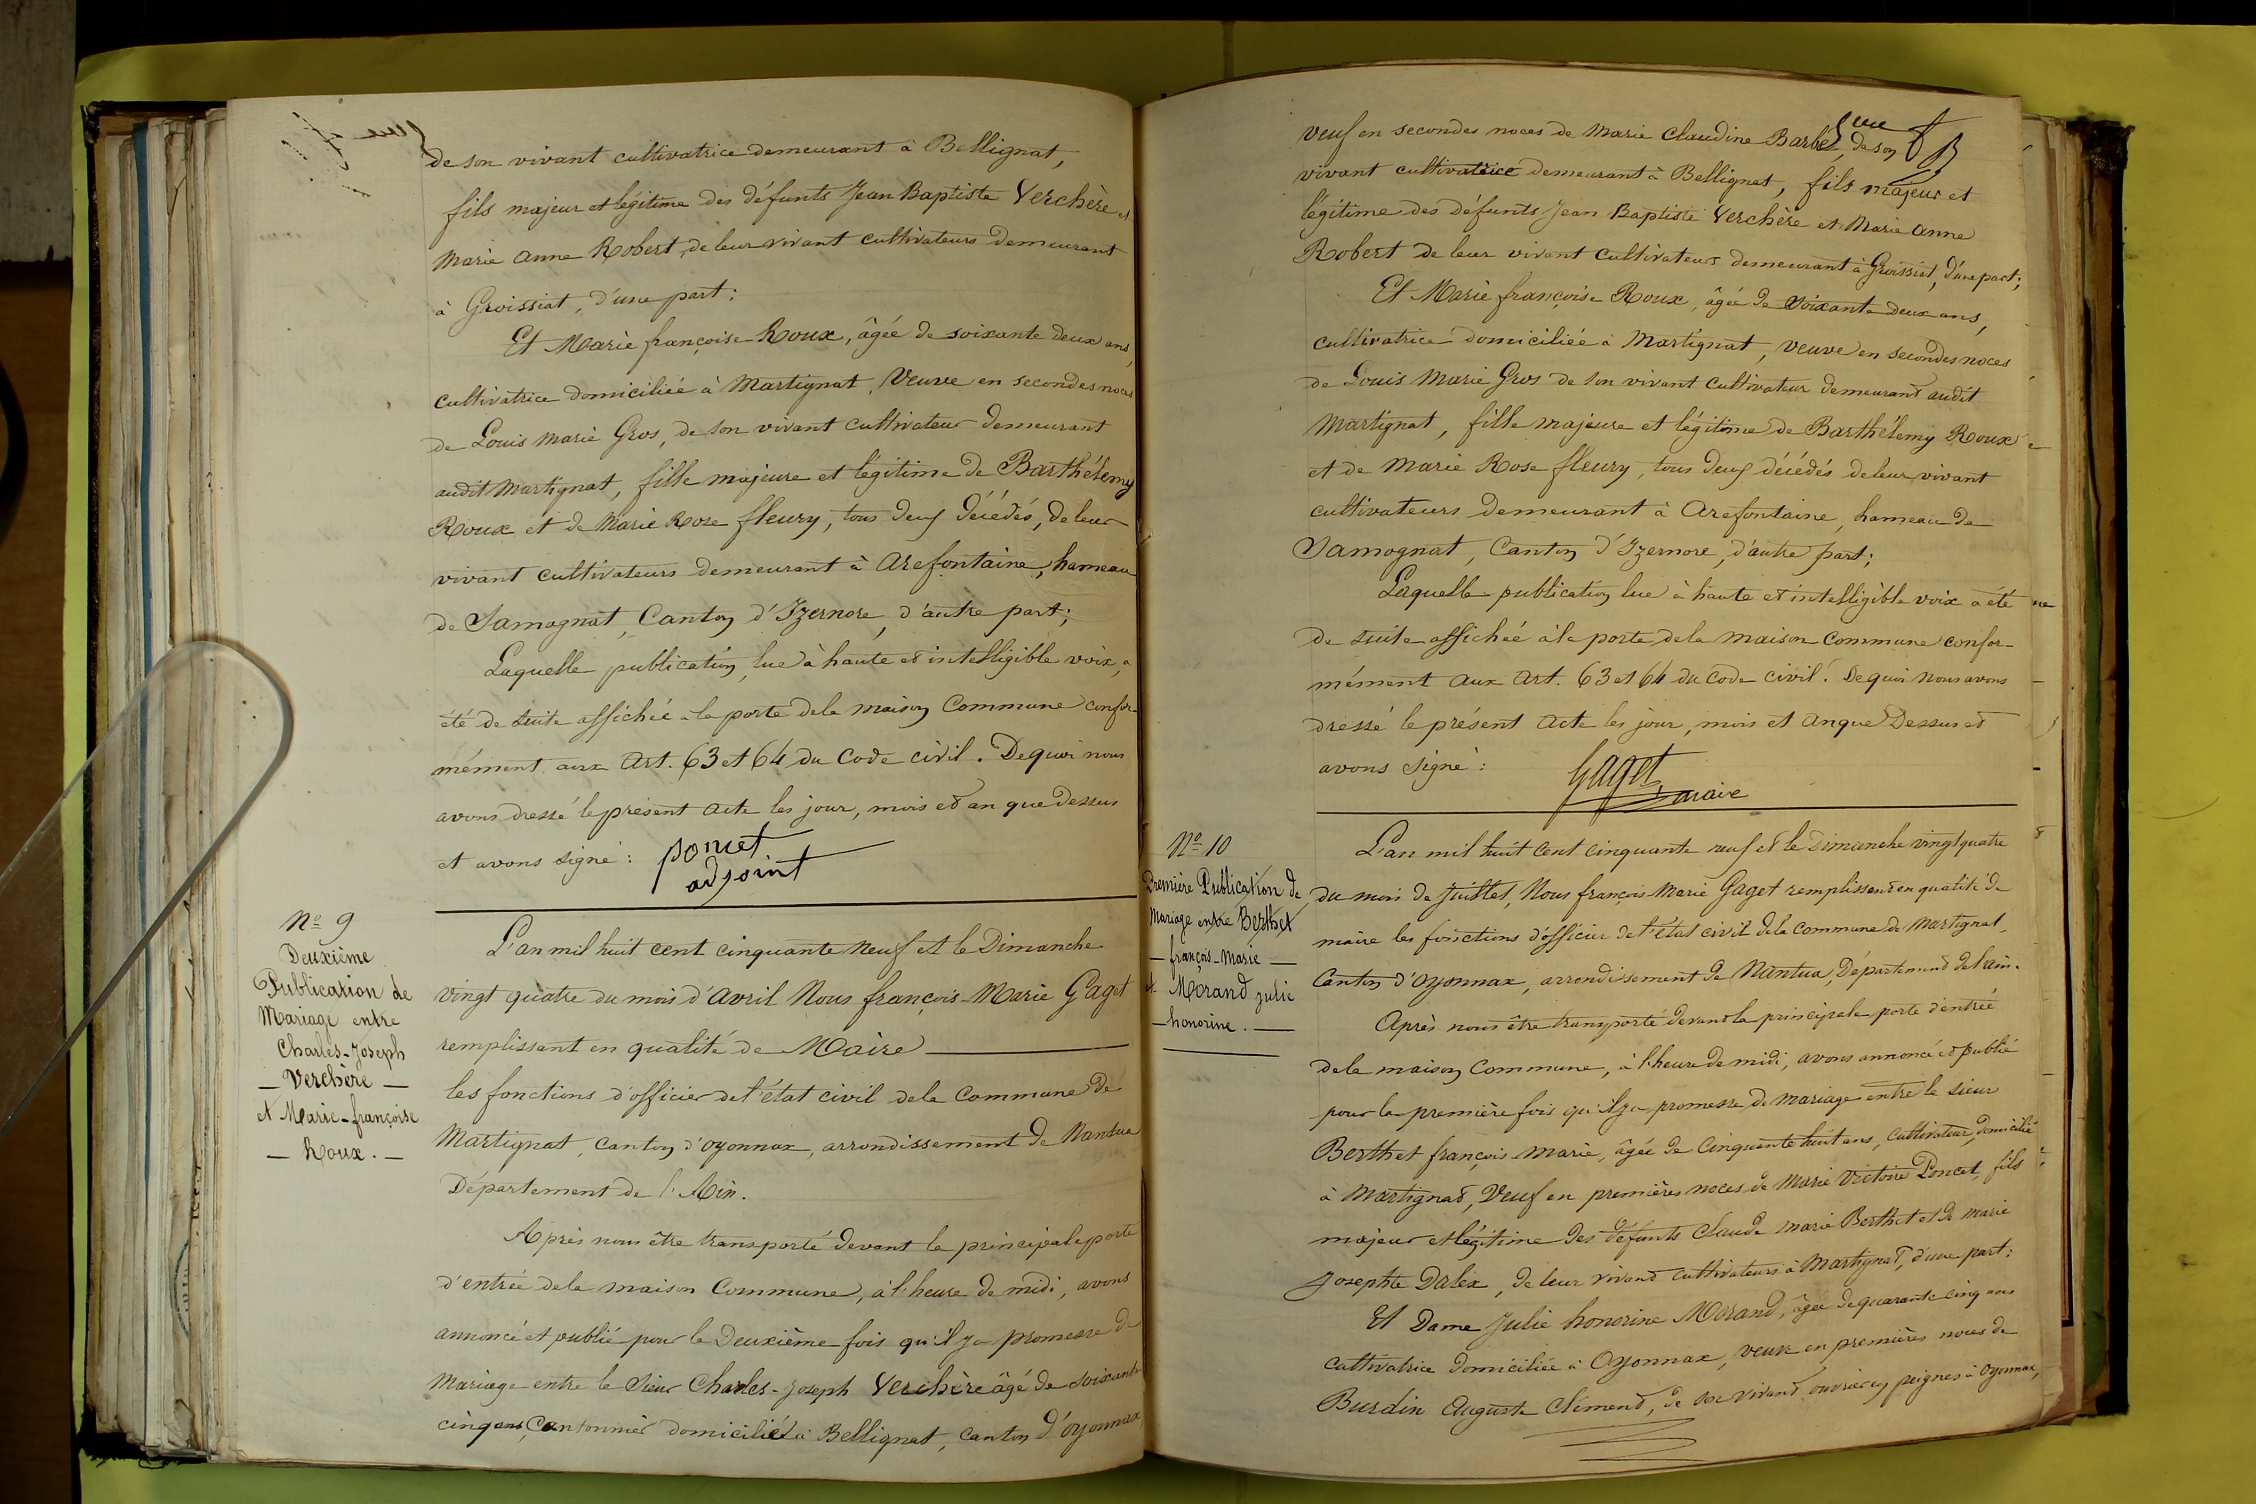 de son vivant cultivatrice demeurant à Bellignat,
fils majeur et légitime des défunts Jean Baptiste Verchère et
Marie Anne Robert, de leur vivant cultivateurs demeurant
à Groissiat, d'une part;
Et Marie françoise Roux, âgée de soixante deux ans,
cultivatrice domiciliée à Martignat, Veuve en secondes noces
de Louis Marie Gros, de son vivant cultivateur demeurant
audit Martignat, fille majeure et légitime de Barthélemy
Roux et de Marie Rose fleury, tous deux décédés, de leur
vivant cultivateurs demeurant à Arefontaine, hameau
de Samognat, Canton d'Izernore, d'autre part;
Laquelle publication, lue à haute et intelligible voix, a
été de suite affichée à la porte de la maison Commune confor-
mément aux Art. 63 et 64 du Code civil. De quoi nous
avons dressé le présent acte les jour, mois et an que dessus
et avons signé:
poncet
adjoint
No 9
Deuxième
Publication de
Mariage entre
Charles-Joseph
— Verchère —
et Marie-françoise
— Roux. —
L'an mil huit cent cinquante neuf et le Dimanche
vingt quatre du mois d'Avril Nous françois-Marie Gaget
remplissant en qualité de Maire
les fonctions d'officier de l'état civil de la Commune de
Martignat, canton d'oyonnax, arrondissement de Nantua
Département de l'Ain.
Après nous être transporté devant la principale porte
d'entrée de la maison Commune, à l'heure de midi, avons
annoncé et publié pour la Deuxième fois qu'il y a promesse de
Mariage entre le Sieur Charles-Joseph Verchère âgé de soixante
cinq ans, Cantonnier domicilié à Bellignat, canton d'oyonnax
veuf en secondes noces de Marie Claudine Barbe, de son
vivant cultivatrice demeurant à Bellignat, fils majeur et
légitime des défunts Jean Baptiste Verchère et Marie Anne
Robert de leur vivant Cultivateurs demeurant à Groissiat, d'une part;
Et Marie françoise Roux, âgée de soixante deux ans,
cultivatrice domiciliée à Martignat, veuve en secondes noces
de Louis Marie Gros de son vivant cultivateur demeurant audit
Martignat, fille majeure et légitime de Barthélemy Roux
et de Marie Rose fleury, tous deux décédés de leur vivant
cultivateurs demeurant à Arefontaine, hameau de
Samognat, Canton d'Izernore, d'autre part;
Laquelle publication lue à haute et intelligible voix a été
de suite affichée à la porte de la maison Commune confor-
mément aux Art. 63 et 64 du Code civil. De quoi nous avons
dressé le présent Acte les jour, mois et an que Dessus et
avons signé:
Gaget
maire
No 10
Première Publication de
Mariage entre Berthet
— françois-Marie —
et Morand julie
— honorine. —
L'an mil huit cent cinquante neuf et le Dimanche vingt quatre
du mois de Juillet, Nous françois Marie Gaget remplissant en qualité de
maire les fonctions d'officier de l'état civil de la commune de Martignat,
Canton d'oyonnax, arrondissement de Nantua, Département de l'ain.
Après nous être transporté devant la principale porte d'entrée
de la maison Commune, à l'heure de midi, avons annoncé et publié
pour la première fois qu'il y a promesse de mariage entre le sieur
Berthet françois Marie, âgée de Cinquante huit ans, cultivateur, domicilié
à Martignat, Veuf en premières noces de Marie Victoire Poncet, fils
majeur et légitime des défunts Claude Marie Berthet et de Marie
Josephte Dalex, de leur vivant cultivateurs à Martignat, d'une part:
Et Dame Julie honorine Morand, âgée de quarante cinq ans
cultivatrice domiciliée à Oyonnax, veuve en premières noces de
Burdin Auguste Clément, de son vivant ouvrier en peignes à Oyonnax,